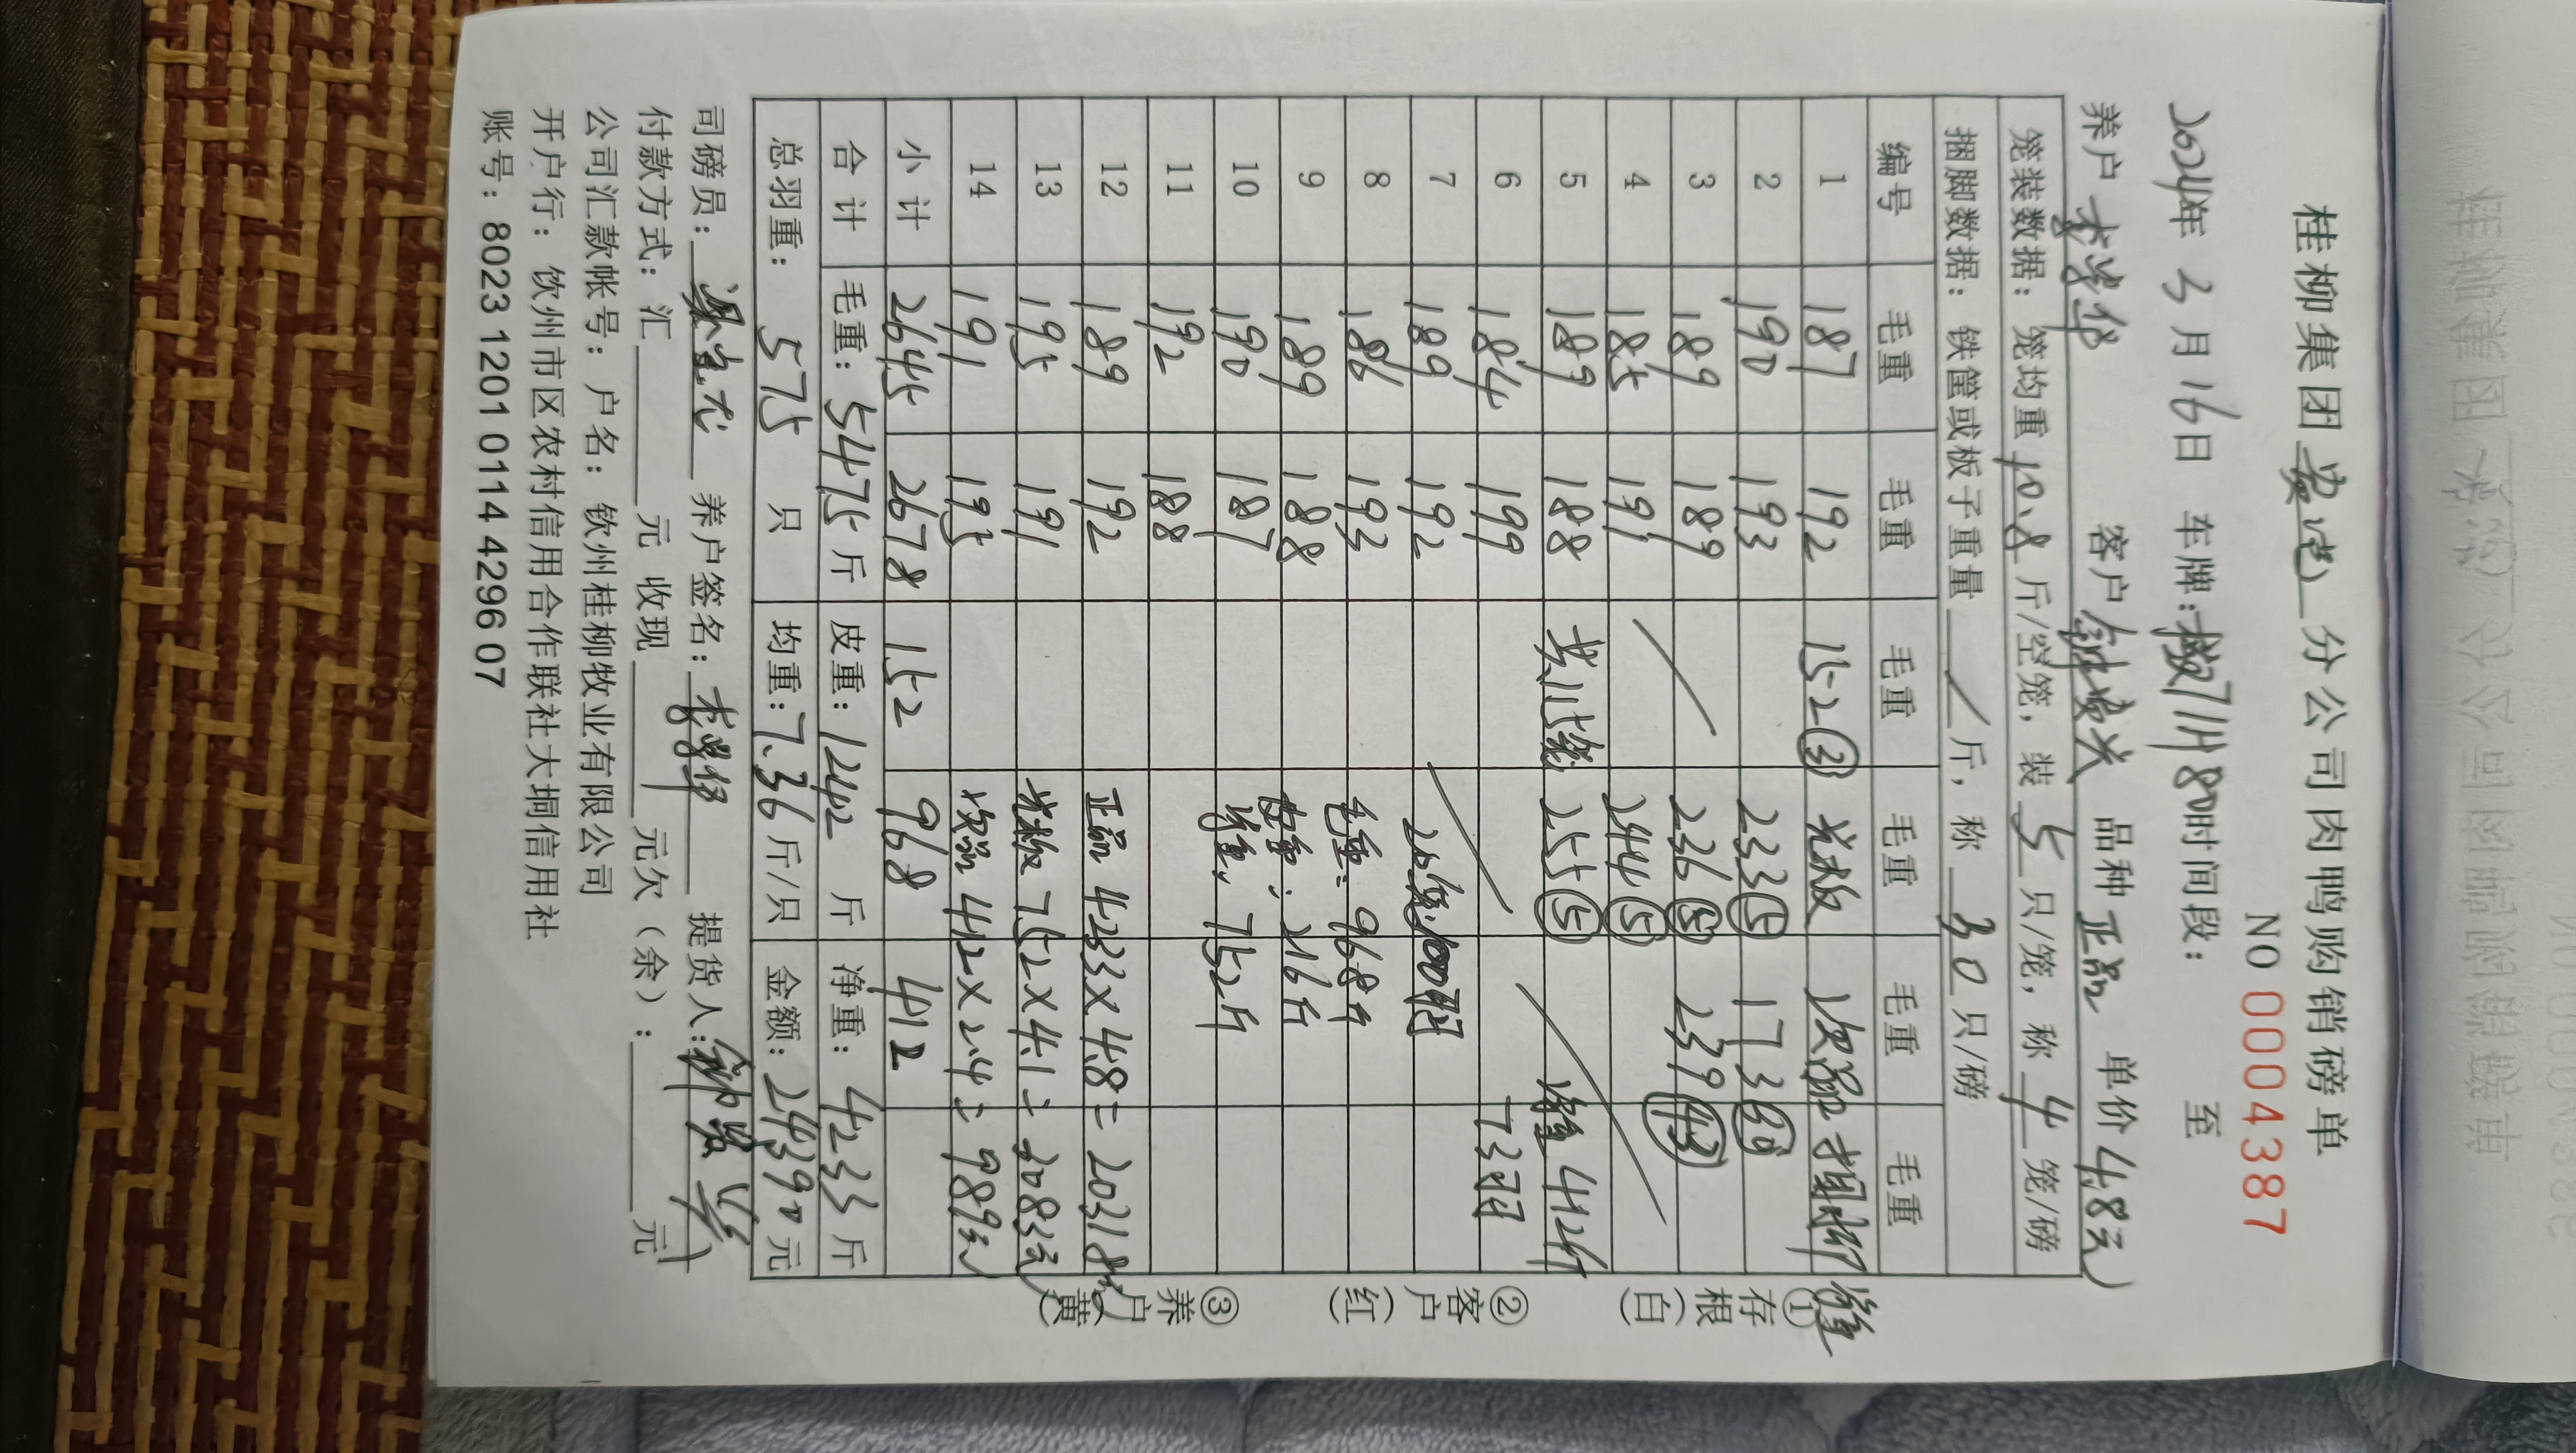 桂柳集团 分公司肉鸭购销磅单
NO 0004387
2024年 3月16日 车牌: 7118 80时间段: 至
养户 李学华 客户 品种 正品 单价 4.8元
笼装数据: 笼均重 10.8 斤/空笼, 装 5 只/笼, 称 4 笼/磅
捆脚数据: 铁筐或板子重量 / 斤, 称 30 只/磅
编号 毛重 毛重 毛重 毛重 毛重 毛重
1 187 192 152③ 光板 次品 捆脚 净重
2 190 193 233⑤ 173㉚
3 189 189 236⑤ 239㊸
4 185 191 244⑤
5 189 188 共115笼 255⑤ 净重 412斤
6 184 199 73羽
7 189 192 20笼100羽
8 186 193 毛重: 968斤
9 189 188 皮重: 216斤
10 190 187 净重: 752斤
11 192 188
12 189 192 正品 4233×4.8=20318元
13 195 191 光板 752×4.1=3083元
14 191 195 次品 412×2.4=989元
小计 2645 2678 152 968 412
合计 毛重: 5475斤 皮重: 1242 斤 净重: 4233斤
总羽重: 575 只 均重: 7.36斤/只 金额: 24390元
司磅员: 养户签名: 李学华 提货人:
付款方式: 汇 元 收现 元欠(余): 元
公司汇款帐号: 户名: 钦州桂柳牧业有限公司
开户行: 钦州市区农村信用合作联社大垌信用社
账号: 8023 1201 0114 4296 07
①存根(白)
②客户(红)
③养户(黄)